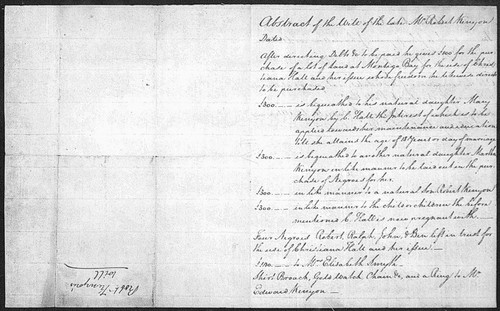 Abstract of the Will of the late Mr. Robert Kenyon
Dated
After directing Debts &c to be paid he gives £100 for the pur-
chase of a Lot of land at Montego Bay, for the use of Christ-
iana Hall and her issue
to be purchased
£300 — is bequeathed to his natural daughter Mary
Kenyon by C. Hall the Interest of which is to be
applied towards her maintenance and education
till she attains the age of 18 years or day of marriage
£300 — is bequeathed to another natural daughter Martha
Kenyon in like manner to be laid out in the pur-
chase of Negroes for her.
£300 — in like manner to a natural Son Robert Kenyon
£300 — in like manner to the child or children the before
mentioned C. Hall is now pregnant with.
Four Negroes Robert, Ralph, John, & Ben left in trust for
the use of Christiana Hall and her issue
£100 — to Mrs. Elizabeth Smyth
Shirt Broach, Gold Watch, Chain &c. and a Ring to Mr.
Edward Kenyon —
Robt. Kenyon's
Will